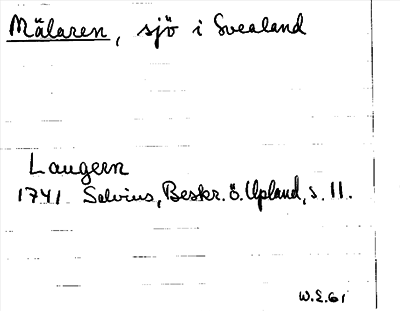 Mälaren, sjö i Svealand
Laugern
1741 Salvius, Beskr. ö. Upland, s. 11.
W.E.61